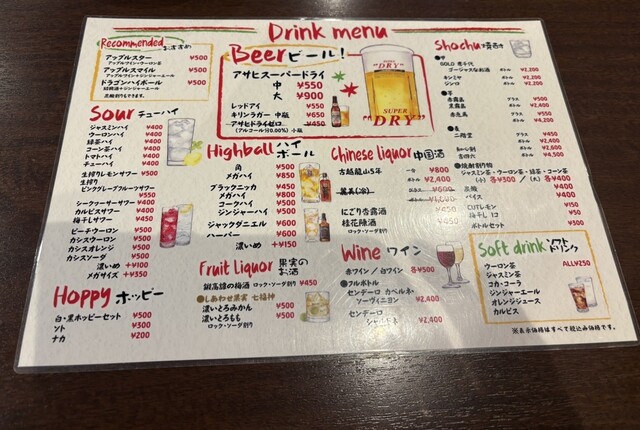 Drink menu
Recommended おすすめ
アップルスター ¥500
アップルワイン・ウーロン茶
アップルスマイル ¥500
アップルワイン・ジンジャーエール
ドラゴンハイボール ¥500
紹興酒・ジンジャーエール
Beer ビール!
アサヒスーパードライ
中 ¥550
大 ¥900
レッドアイ ¥550
キリンラガー 中瓶 ¥650
アサヒドライゼロ ¥450
(アルコール分0.00%) 小瓶
"DRY"
SUPER
"DRY"
Sour チューハイ
ジャスミンハイ ¥400
ウーロンハイ ¥400
緑茶ハイ ¥400
コーン茶ハイ ¥400
トマトハイ ¥400
チューハイ ¥400
生搾りレモンサワー ¥500
生搾り
ピンクグレープフルーツサワー ¥550
シークヮーサーサワー ¥400
カルピスサワー ¥400
梅干しサワー ¥450
ピーチウーロン ¥500
カシスウーロン ¥500
カシスオレンジ ¥500
カシスソーダ ¥500
濃いめ +¥100
メガサイズ +¥350
Hoppy ホッピー
白・黒ホッピーセット ¥500
ソト ¥300
ナカ ¥200
Highball ハイボール
角 ¥500
メガハイ ¥850
ブラックニッカ ¥450
メガハイ ¥800
コークハイ ¥500
ジンジャーハイ ¥500
ジャックダニエル ¥600
ハーパー ¥600
濃いめ +¥150
Fruit Liquor 果実のお酒
ロック・ソーダ割り ¥450
●しあわせ果実 七福神
濃いとろみかん ¥500
濃いとろもも ¥500
ロック・ソーダ割り
Chinese liquor 中国酒
古越龍山5年 一合 ¥800
ボトル ¥2,400
にごり杏露酒 ¥450
桂花陳酒 ¥450
ロック・ソーダ割り
Wine ワイン
赤ワイン/白ワイン 各¥500
●フルボトル
センデーロ カベルネ・ソーヴィニヨン ¥2,400
センデーロ
¥2,400
Shochu 焼酎
●甲
GOLD
ゴージャスなお酒 ボトル ¥2,200
キンミヤ ボトル ¥2,200
ジンロ ボトル ¥2,200
●芋
赤霧島 グラス ¥500
黒霧島 ボトル ¥2,400
●麦
二階堂 グラス
ボトル
●焼酎割り物
ジャスミン茶・ウーロン茶・緑茶・コーン茶
(小) 各¥300/(大) 各¥400
バイス
CUTレモン
梅干し1コ ¥50
ボトルセット ¥300
Soft drink ソフトドリンク
ALL¥250
ウーロン茶
ジャスミン茶
コカ・コーラ
ジンジャーエール
オレンジジュース
カルピス
※表示価格はすべて税込み価格です。